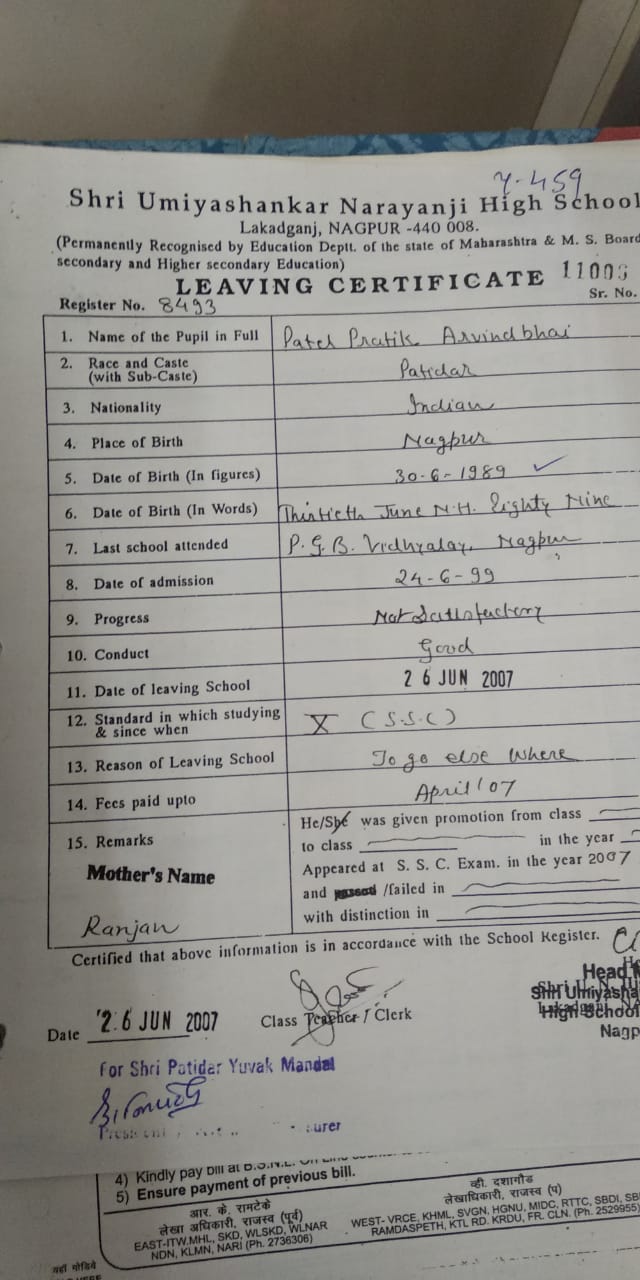 7-459
Shri Umiyashankar Narayanji High School
Lakadganj, NAGPUR -440 008.
(Permanently Recognised by Education Deptt. of the state of Maharashtra & M. S. Board
secondary and Higher secondary Education)
LEAVING CERTIFICATE 11006
Register No. 8493 Sr. No.
1. Name of the Pupil in Full Patel Pratik Arvindbhai
2. Race and Caste Patidar
(with Sub-Caste)
3. Nationality Indian
4. Place of Birth Nagpur
5. Date of Birth (In figures) 30-6-1989 ✓
6. Date of Birth (In Words) Thirtieth June N.H. Eighty Nine
7. Last school attended P. G. B. Vidhyalay, Nagpur
8. Date of admission 24-6-99
9. Progress Not Satisfactory
10. Conduct Good
11. Date of leaving School 26 JUN 2007
12. Standard in which studying X (S.S.C)
& since when
13. Reason of Leaving School To go else where
14. Fees paid upto April '07
15. Remarks He/She was given promotion from class
to class in the year
Mother's Name Appeared at S. S. C. Exam. in the year 2007
and passed /failed in
Ranjan with distinction in
Certified that above information is in accordance with the School Register.
Date 26 JUN 2007 Class Teacher / Clerk
Head
Shri Umiyasha
High School
Nagp
For Shri Patidar Yuvak Mandal
4) Kindly pay bill at B.S.N.L. On Line
5) Ensure payment of previous bill.
आर. के. रामटेके
लेखा अधिकारी, राजस्व (पूर्व)
EAST-ITW.MHL, SKD, WLSKD, WLNAR
NDN, KLMN, NARI (Ph. 2736306)
व्ही. दशागौड
लेखाधिकारी, राजस्व (प)
WEST- VRCE, KHML, SVGN, HGNU, MIDC, RTTC, SBDI, SB
RAMDASPETH, KTL RD. KRDU, FR. CLN. (Ph. 2529955)
यहाँ मोडिये